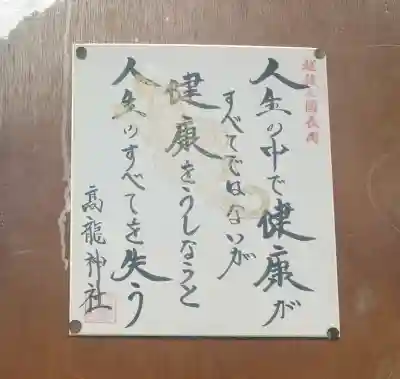 越後之國長岡
人生の中で健康が
すべてではないが
健康をうしなうと
人生のすべてを失う
高龍神社